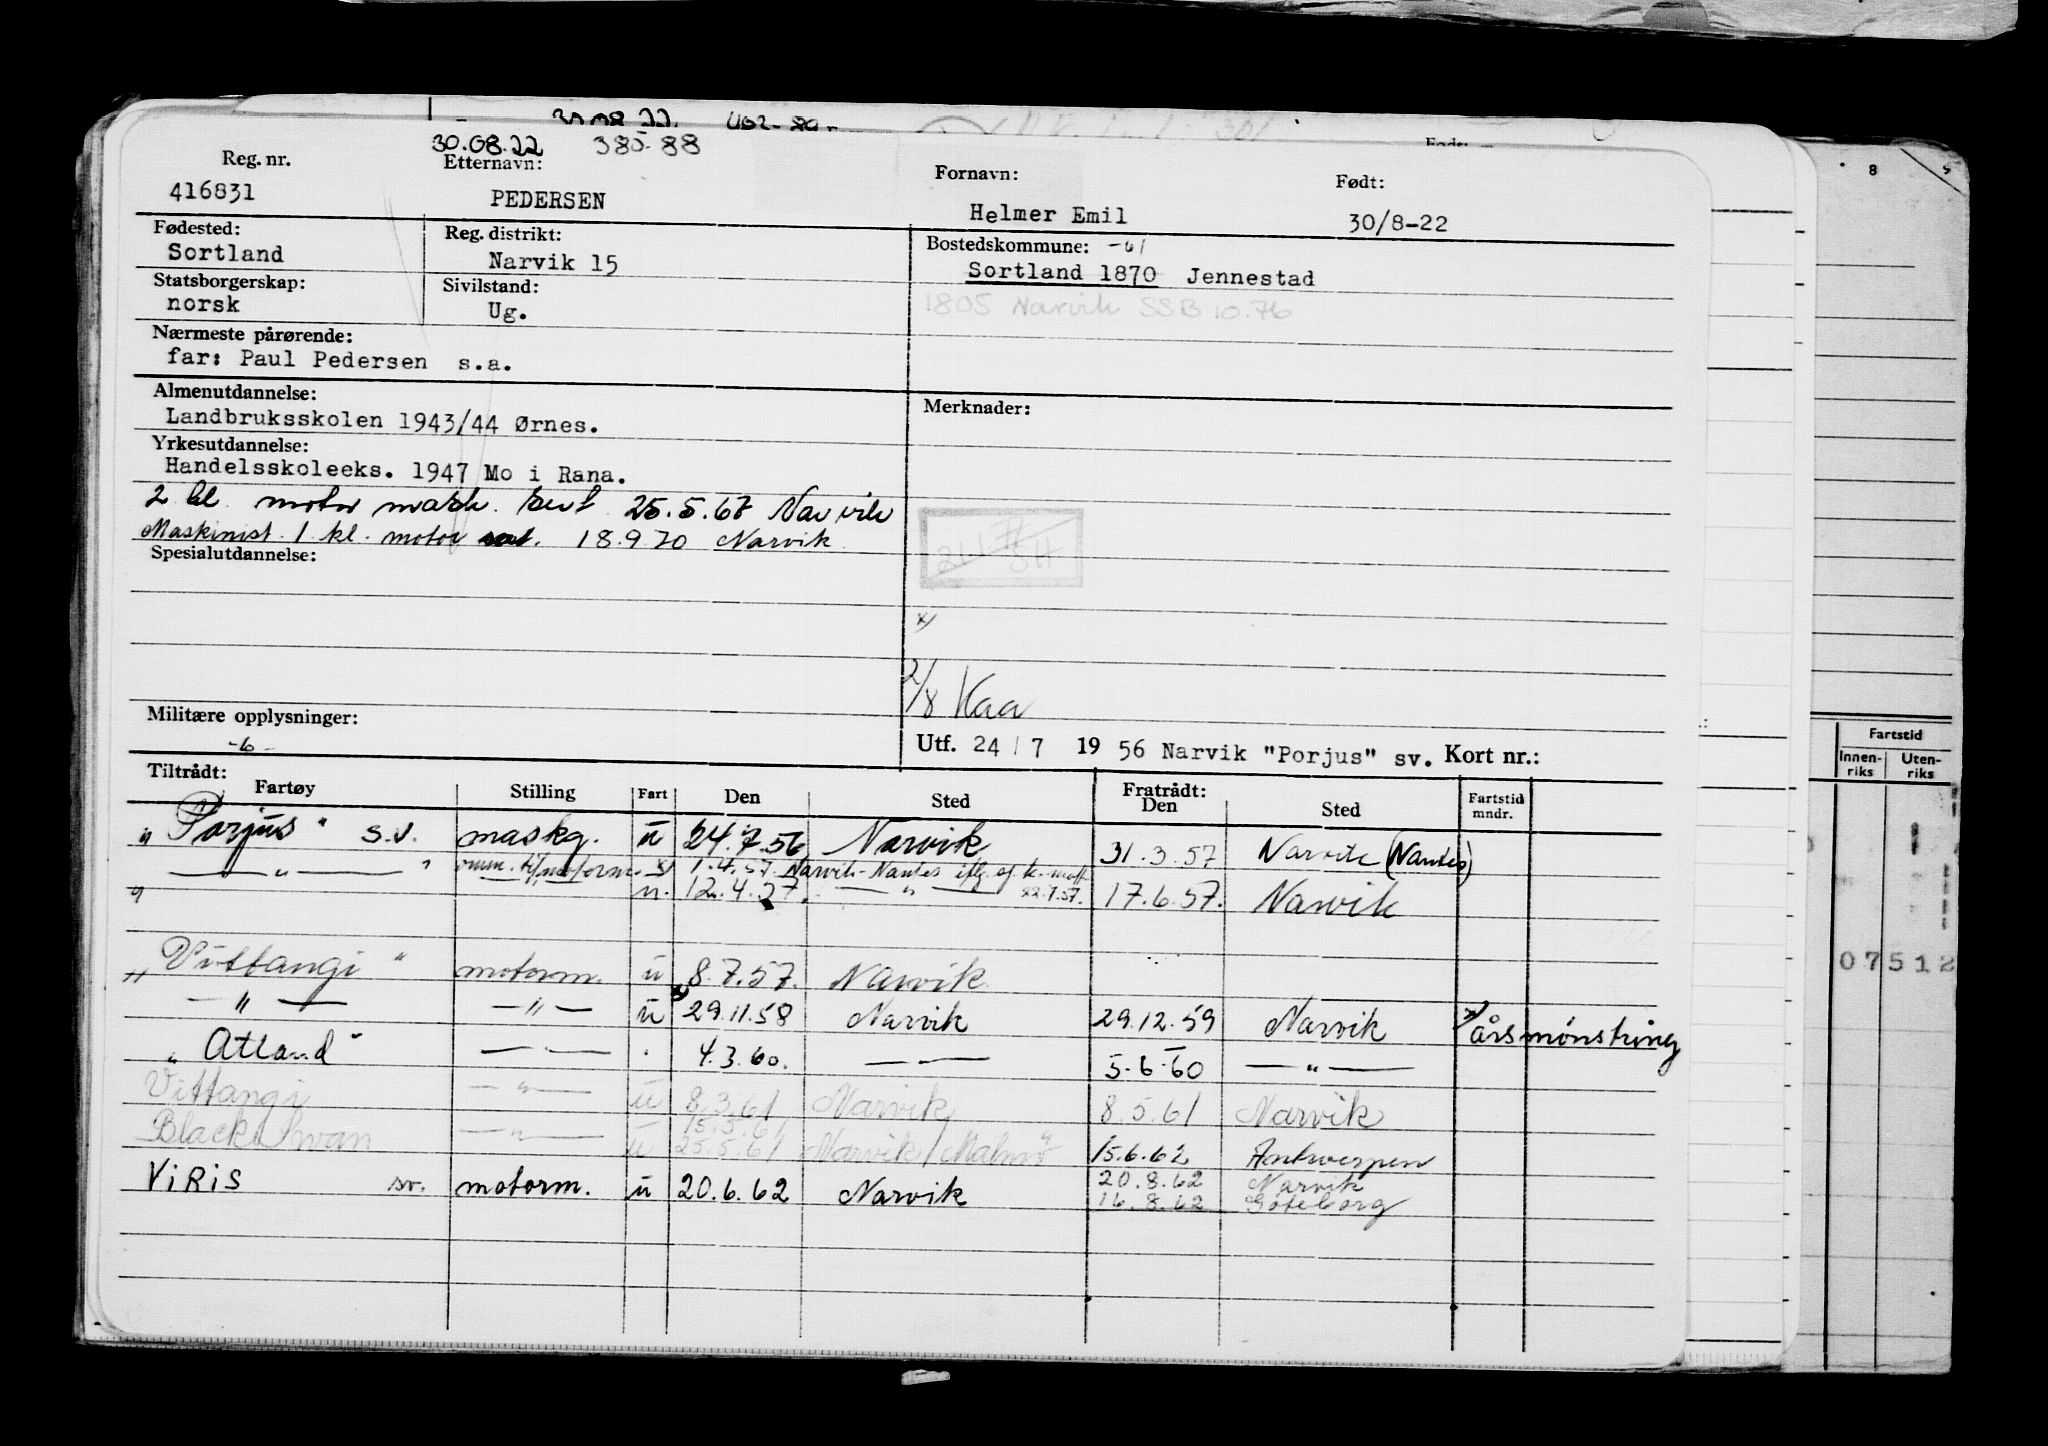 30.08.22 385-88
Reg. nr. Etternavn: Fornavn: Født:
416831 PEDERSEN Helmer Emil 30/8-22
Fødested: Reg. distrikt: Bostedskommune: -61
Sortland Narvik 15 Sortland 1870 Jennestad
Statsborgerskap: Sivilstand:
norsk Ug. 1805 Narvik SSB 10.76
Nærmeste pårørende:
far: Paul Pedersen s.a.
Almenutdannelse: Merknader:
Landbruksskolen 1943/44 Ørnes.
Yrkesutdannelse:
Handelsskoleeks. 1947 Mo i Rana.
2 kl. motor mask. sert 25.5.67 Narvik
Maskinist 1 kl. motor 18.9.70 Narvik
Spesialutdannelse:
x)
2/8 Kaa
Militære opplysninger:
-6-
Utf. 24/7 1956 Narvik "Porjus" sv. Kort nr.:
Tiltrådt: Fratrådt:
Fartøy Stilling Fart Den Sted Den Sted Fartstid mndr.
"Porjus" s.v. maskg. u 24.7.56 Narvik 31.3.57 Narvik (Nantes)
— " — " omm. til motorm. x) 1.4.57 Narvik-Nantes iflg.
" u. 12.4.57. — " — 22.7.57. 17.6.57. Narvik
"Vittangi" motorm. u 8.7.57. Narvik
— " — — " — u x) 29.11.58 Narvik 29.12.59 Narvik x) årsmønstring
"Atland" — " — 4.3.60. — " — 5.6.60 — " —
Vittangi — " — u 8.3.61 Narvik 8.5.61 Narvik
15.5.61
Black Swan — " — u 25.5.61 Narvik/Malmö 15.6.62 Antwerpen
20.8.62 Narvik
VIRIS sv. motorm. u 20.6.62 Narvik 16.8.62 Göteborg
8
Fartstid
Innenriks Utenriks
07512